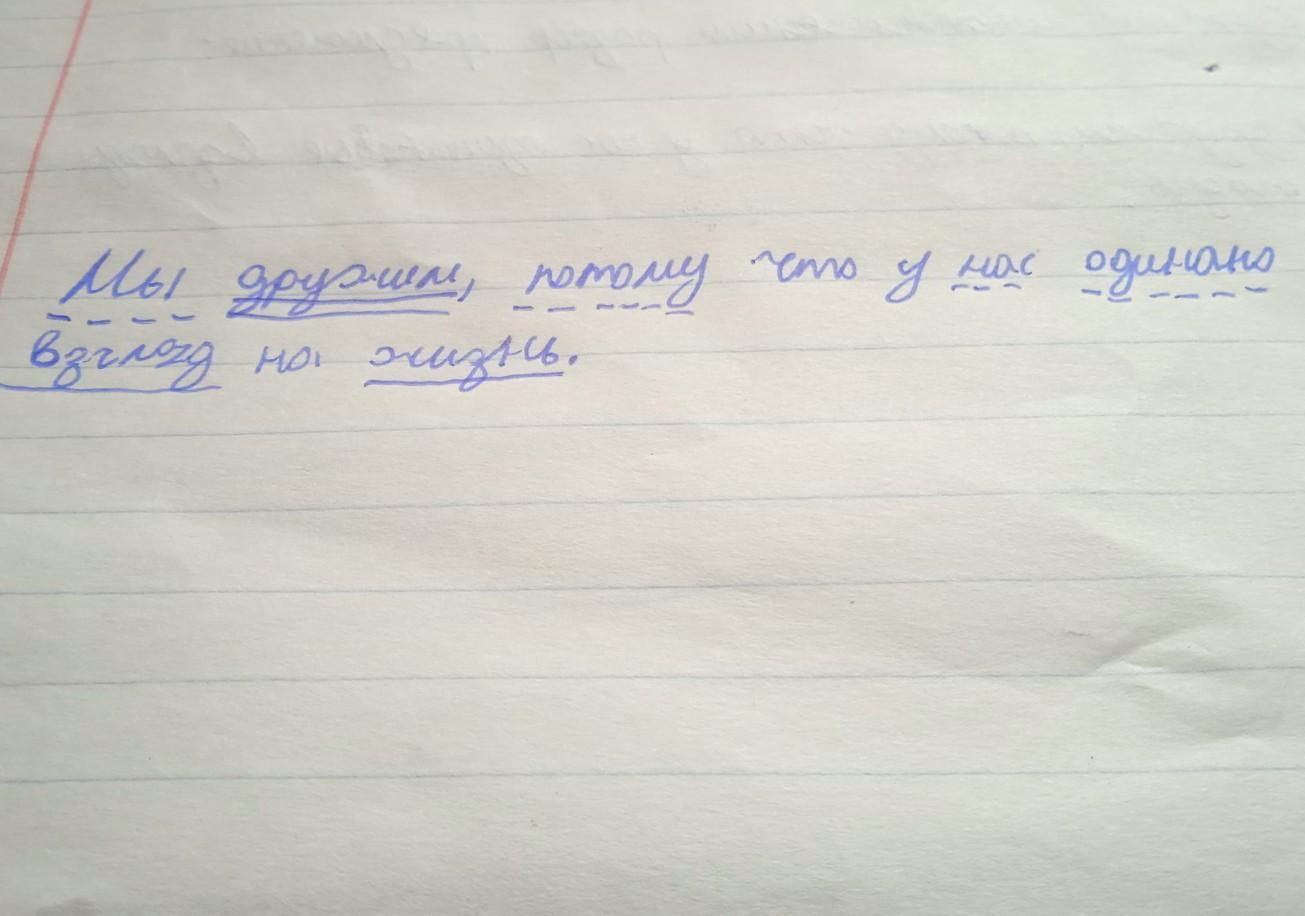 Мы дружим, потому что у нас одинако
взгляд на жизнь.